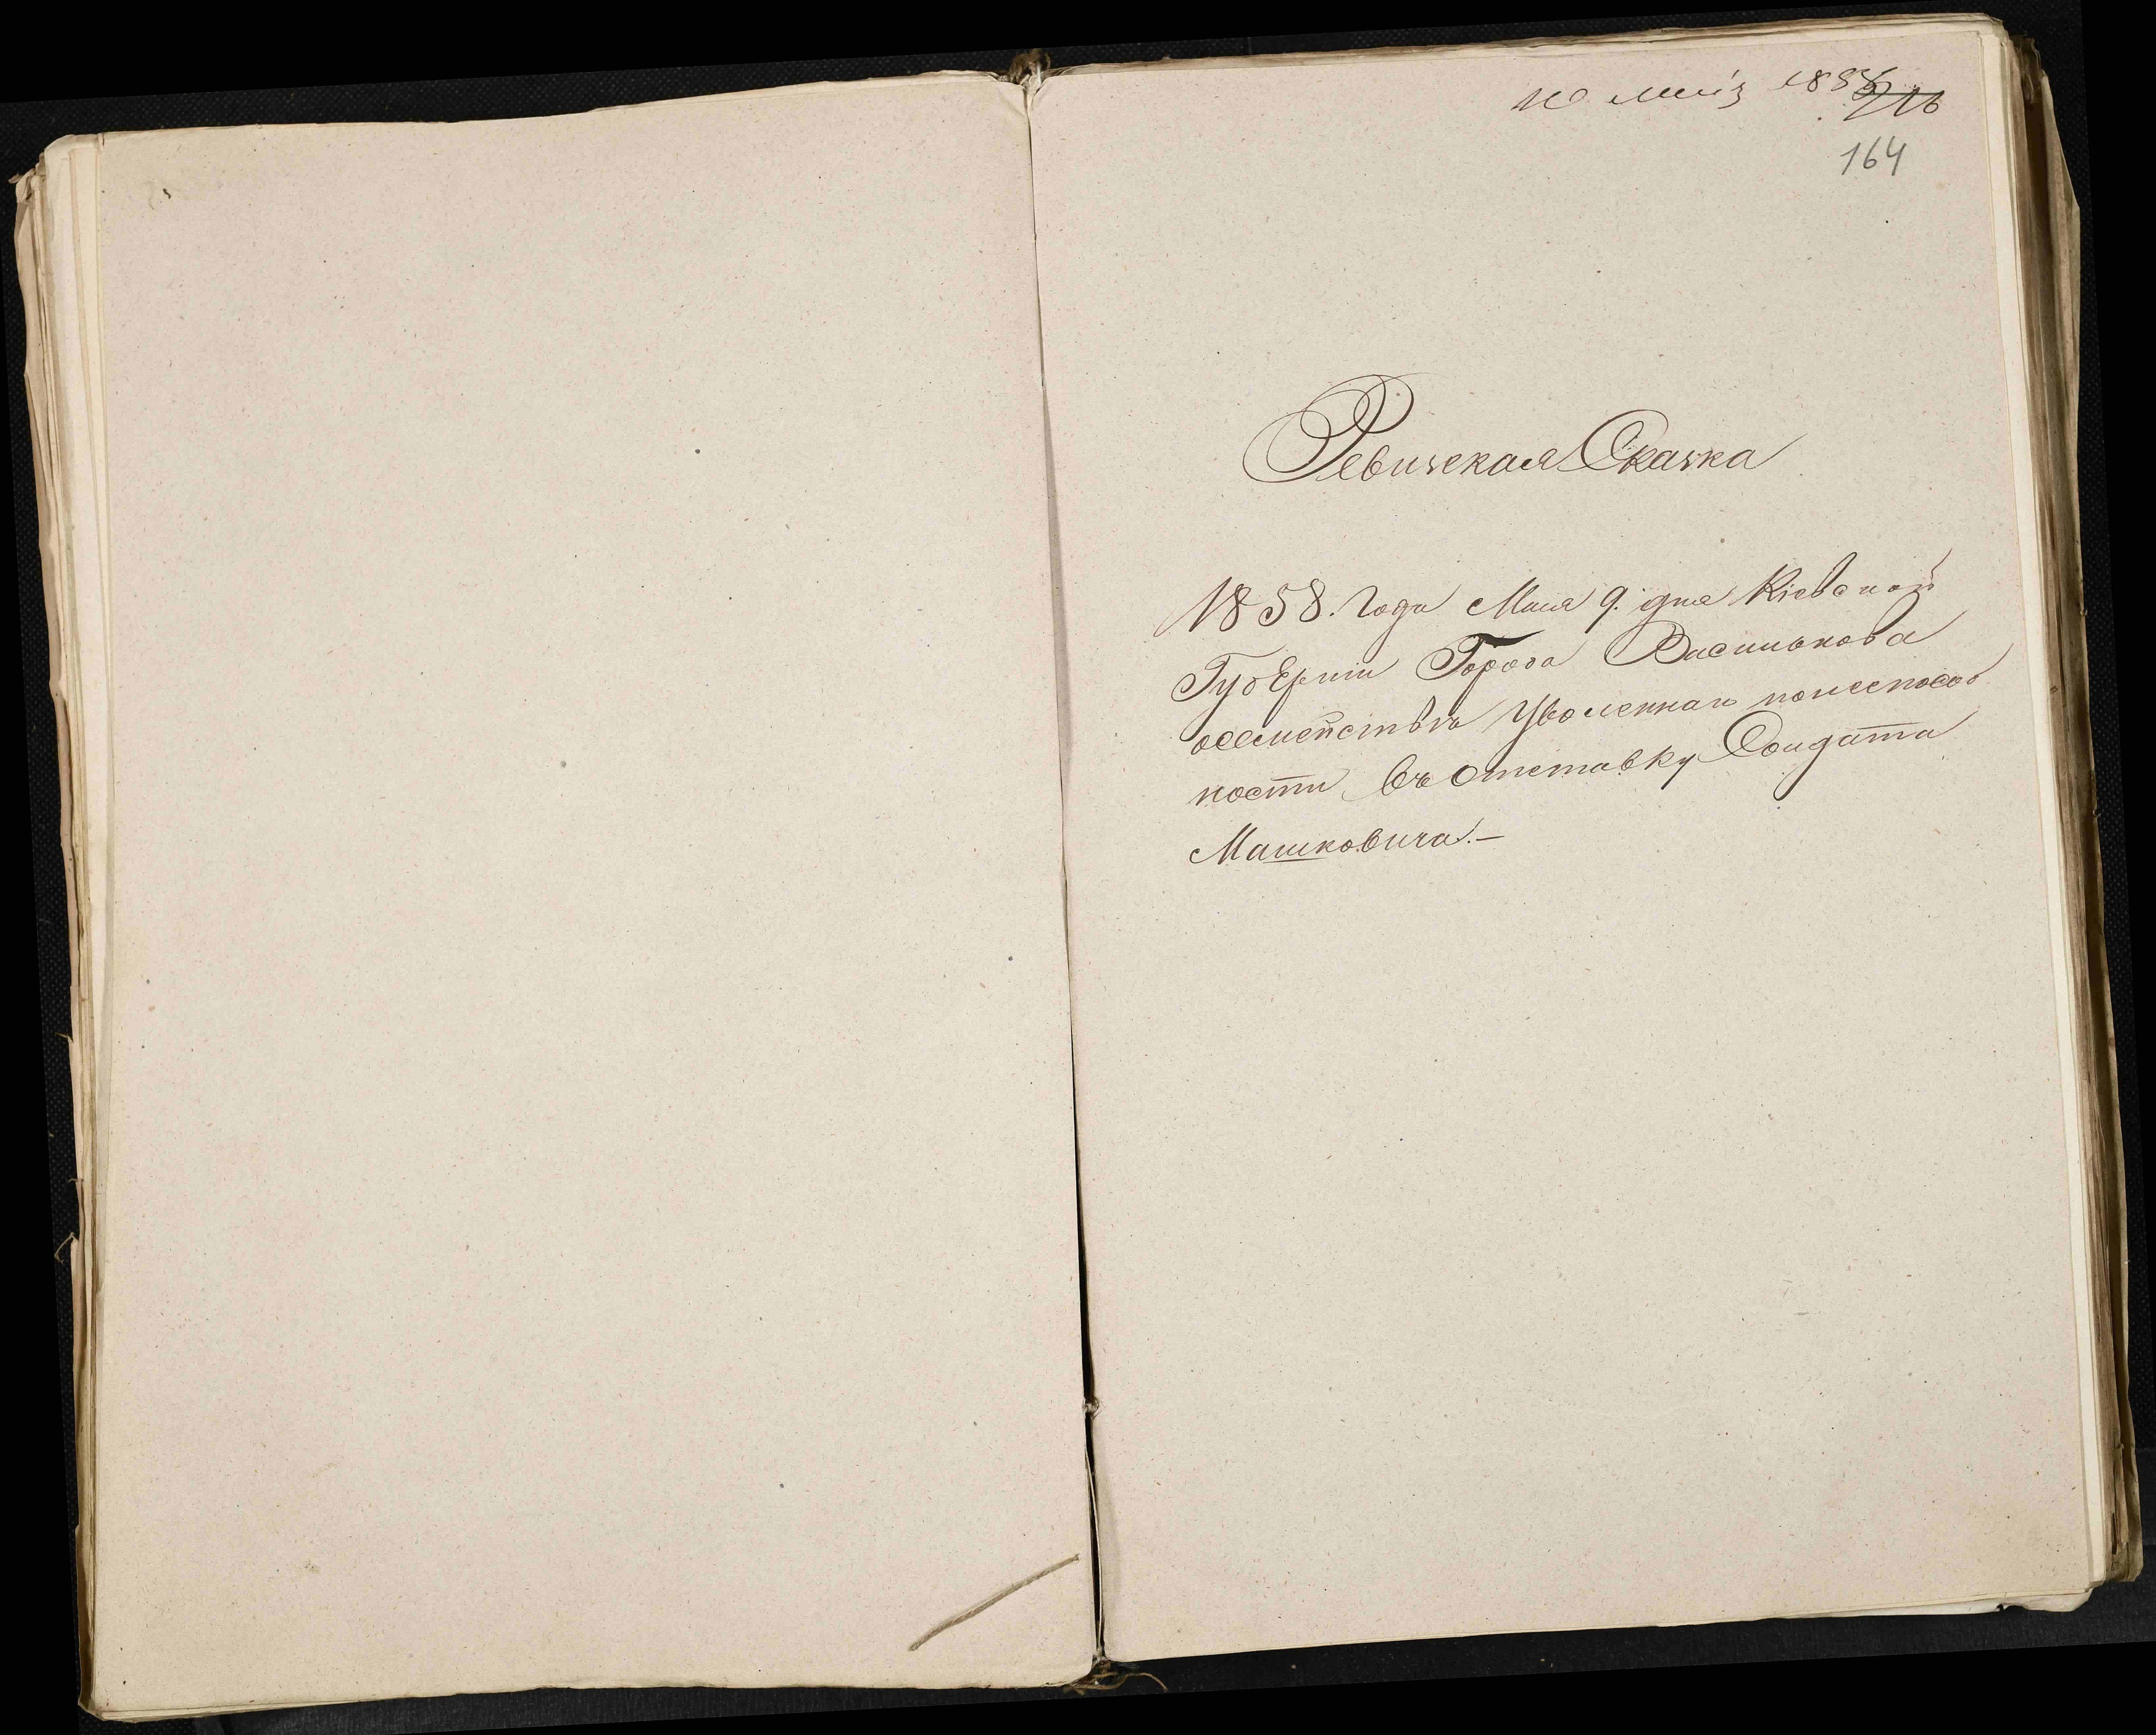 10 мая 1858
216
164
Ревизская Сказка
1858. Года Мая 9. дня Кіевской
Губерніи Города Василькова
осемействѣ Уволеннаго понеспособ
ности въ отставку Солдата
Машковича.—